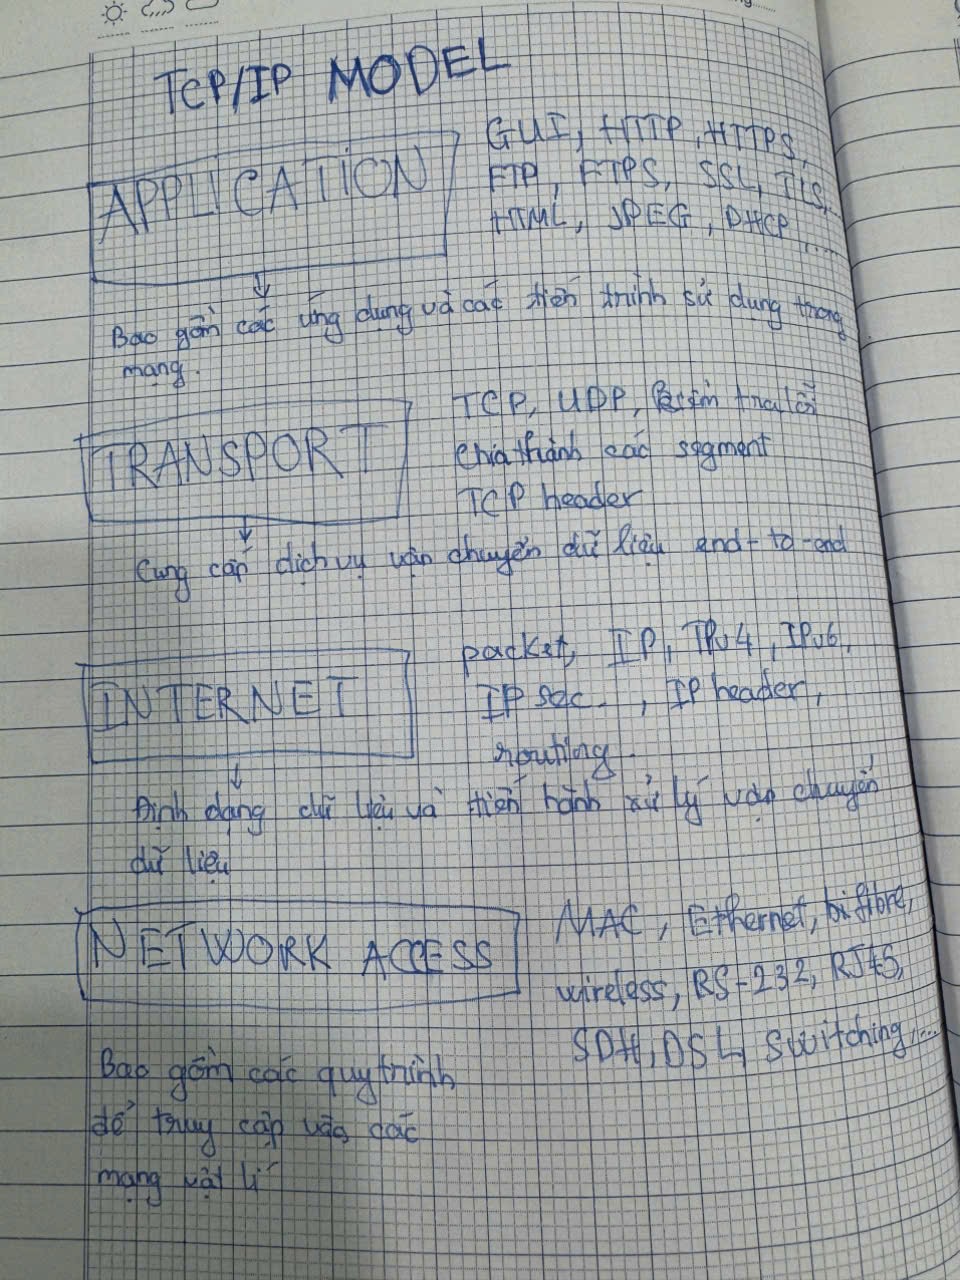 TCP/IP MODEL
APPLICATION
GUI, HTTP, HTTPS,
FTP, FTPS, SSL, TLS,
HTML, JPEG, DHCP, ....
Bao gồm các ứng dụng và các tiến trình sử dụng trong
mạng.
TRANSPORT
TCP, UDP, kiểm tra lỗi
chia thành các segment
TCP header
Cung cấp dịch vụ vận chuyển dữ liệu end-to-end
INTERNET
packet, IP, IPv4, IPv6,
IP sec, IP header,
routing.
Định dạng dữ liệu và tiến hành xử lý vận chuyển
dữ liệu
NETWORK ACCESS
MAC, Ethernet, fibre,
wireless, RS-232, RJ45,
SDH, DSL, switching,...
Bao gồm các quy trình
để truy cập vào các
mạng vật lí